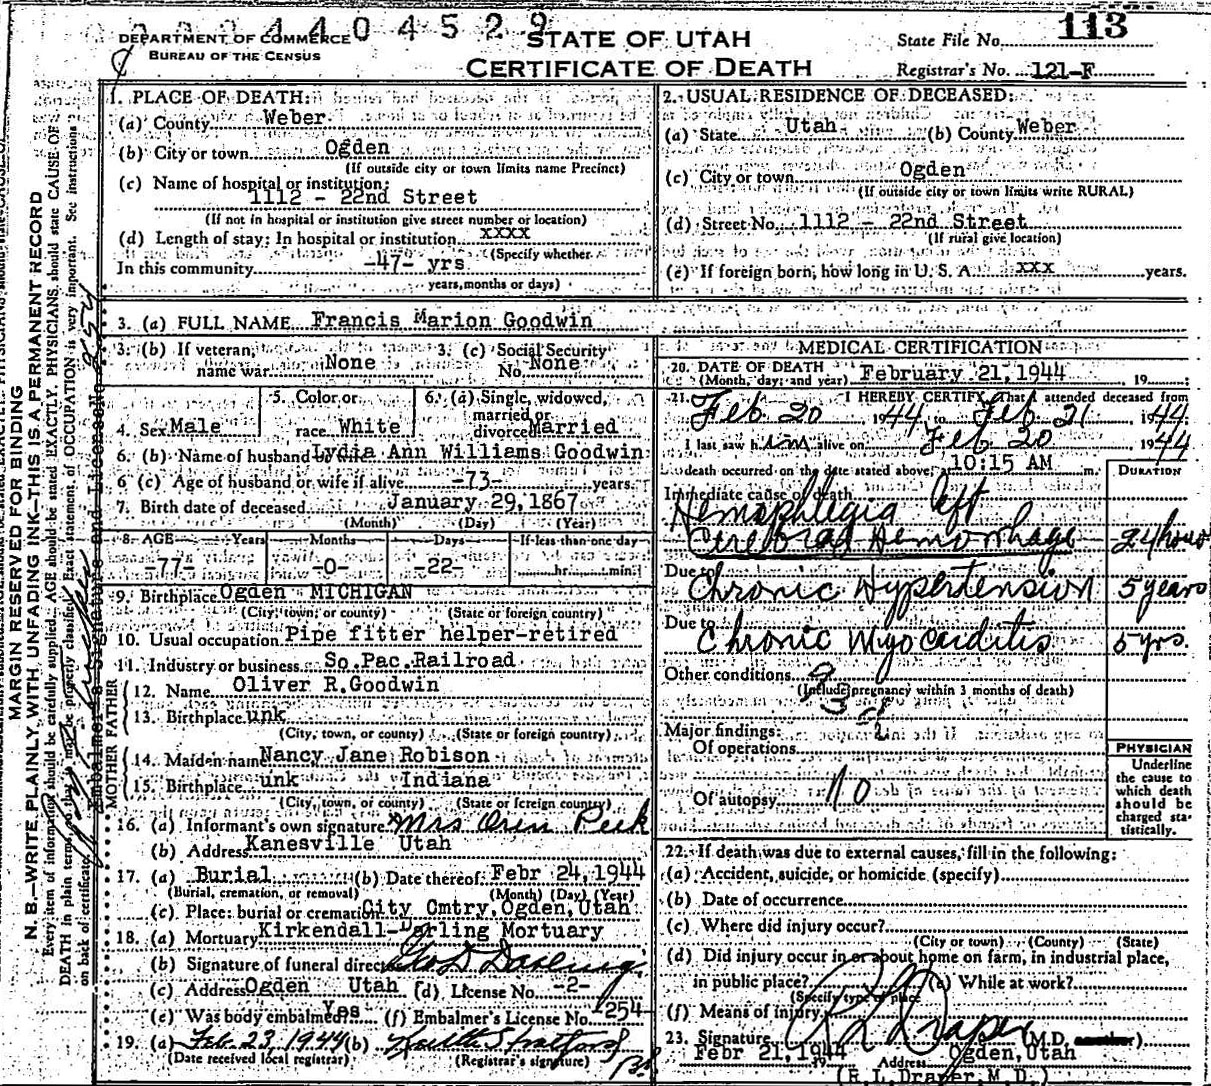 2 2 2 4 4 0 4 5 2 9
DEPARTMENT OF COMMERCE
BUREAU OF THE CENSUS
STATE OF UTAH
CERTIFICATE OF DEATH
State File No. 113
Registrar's No. 121-F
MARGIN RESERVED FOR BINDING
N. B.—WRITE PLAINLY, WITH UNFADING INK—THIS IS A PERMANENT RECORD
Every item of information should be carefully supplied. AGE should be stated EXACTLY. PHYSICIANS should state CAUSE OF
DEATH in plain terms, so that it may be properly classified. Exact statement of OCCUPATION is very important. See instructions
on back of certificate.
Embalmer's Signature and License No.
1. PLACE OF DEATH:
(a) County Weber
(b) City or town Ogden
(If outside city or town limits name Precinct)
(c) Name of hospital or institution:
1112 - 22nd Street
(If not in hospital or institution give street number or location)
(d) Length of stay: In hospital or institution xxxx
(Specify whether
In this community -47- yrs
years, months or days)
2. USUAL RESIDENCE OF DECEASED:
(a) State Utah (b) County Weber
(c) City or town Ogden
(If outside city or town limits write RURAL)
(d) Street No. 1112 - 22nd Street
(If rural give location)
(e) If foreign born, how long in U. S. A. xxx years.
3. (a) FULL NAME Francis Marion Goodwin
3. (b) If veteran, name war None
3. (c) Social Security No. None
4. Sex Male
5. Color or race White
6. (a) Single, widowed, married or divorced Married
6. (b) Name of husband Lydia Ann Williams Goodwin
6 (c) Age of husband or wife if alive -73- years.
7. Birth date of deceased January 29, 1867
(Month) (Day) (Year)
8. AGE Years Months Days If less than one day
-77- -0- -22- hr. min.
9. Birthplace Ogden MICHIGAN
(City, town, or county) (State or foreign country)
10. Usual occupation Pipe fitter helper-retired
11. Industry or business So.Pac.Railroad
FATHER
12. Name Oliver R.Goodwin
13. Birthplace unk
(City, town, or county) (State or foreign country)
MOTHER
14. Maiden name Nancy Jane Robison
15. Birthplace unk Indiana
(City, town, or county) (State or foreign country)
16. (a) Informant's own signature Mrs Oren Peek
(b) Address Kanesville Utah
17. (a) Burial (b) Date thereof Febr 24, 1944
(Burial, cremation, or removal) (Month) (Day) (Year)
(c) Place: burial or cremation City Cmtry, Ogden, Utah
18. (a) Mortuary Kirkendall-Darling Mortuary
(b) Signature of funeral director Geo D Darling
(c) Address Ogden Utah (d) License No. -2-
(e) Was body embalmed? Yes (f) Embalmer's License No. 254
19. (a) Feb. 23, 1944 (b)
(Date received local registrar) (Registrar's signature)
MEDICAL CERTIFICATION
20. DATE OF DEATH
(Month, day, and year) February 21, 1944, 19
21. I HEREBY CERTIFY, That I attended deceased from
Feb 20 1944 to Feb 21 1944
I last saw him alive on Feb 20 1944
death occurred on the date stated above, at 10:15 AM m.
DURATION
Immediate cause of death
Hemaphlegia left
Cerebral Hemorrhage 24 hours
Due to Chronic Hypertension 5 years
Due to Chronic Myocarditis 5 yrs.
Other conditions
(Include pregnancy within 3 months of death)
Major findings:
Of operations
Of autopsy no
PHYSICIAN
Underline
the cause to
which death
should be
charged sta-
tistically.
22. If death was due to external causes, fill in the following:
(a) Accident, suicide, or homicide (specify)
(b) Date of occurrence
(c) Where did injury occur?
(City or town) (County) (State)
(d) Did injury occur in or about home on farm, in industrial place,
in public place? (e) While at work?
(Specify type of place
(f) Means of injury
23. Signature R L Draper (M.D.
Febr 21, 1944 19 Address Ogden, Utah
(R.L.Draper, M.D.)